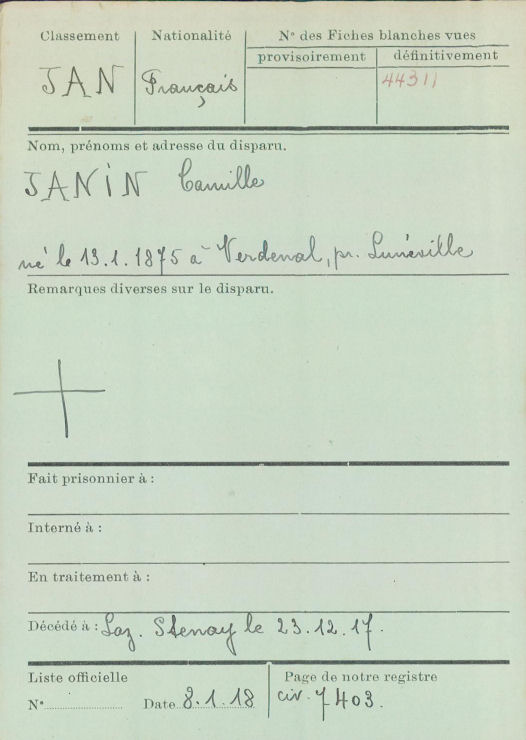 Classement Nationalité Nº des Fiches blanches vues
provisoirement définitivement
JAN Français 44311
Nom, prénoms et adresse du disparu.
JANIN Camille
né le 13.1.1875 à Verdenal, pr. Lunéville
Remarques diverses sur le disparu.
Fait prisonnier à :
Interné à :
En traitement à :
Décédé à : Laz. Stenay le 23.12.17.
Liste officielle Page de notre registre
Nº Date 8.1.18 civ. 7403.